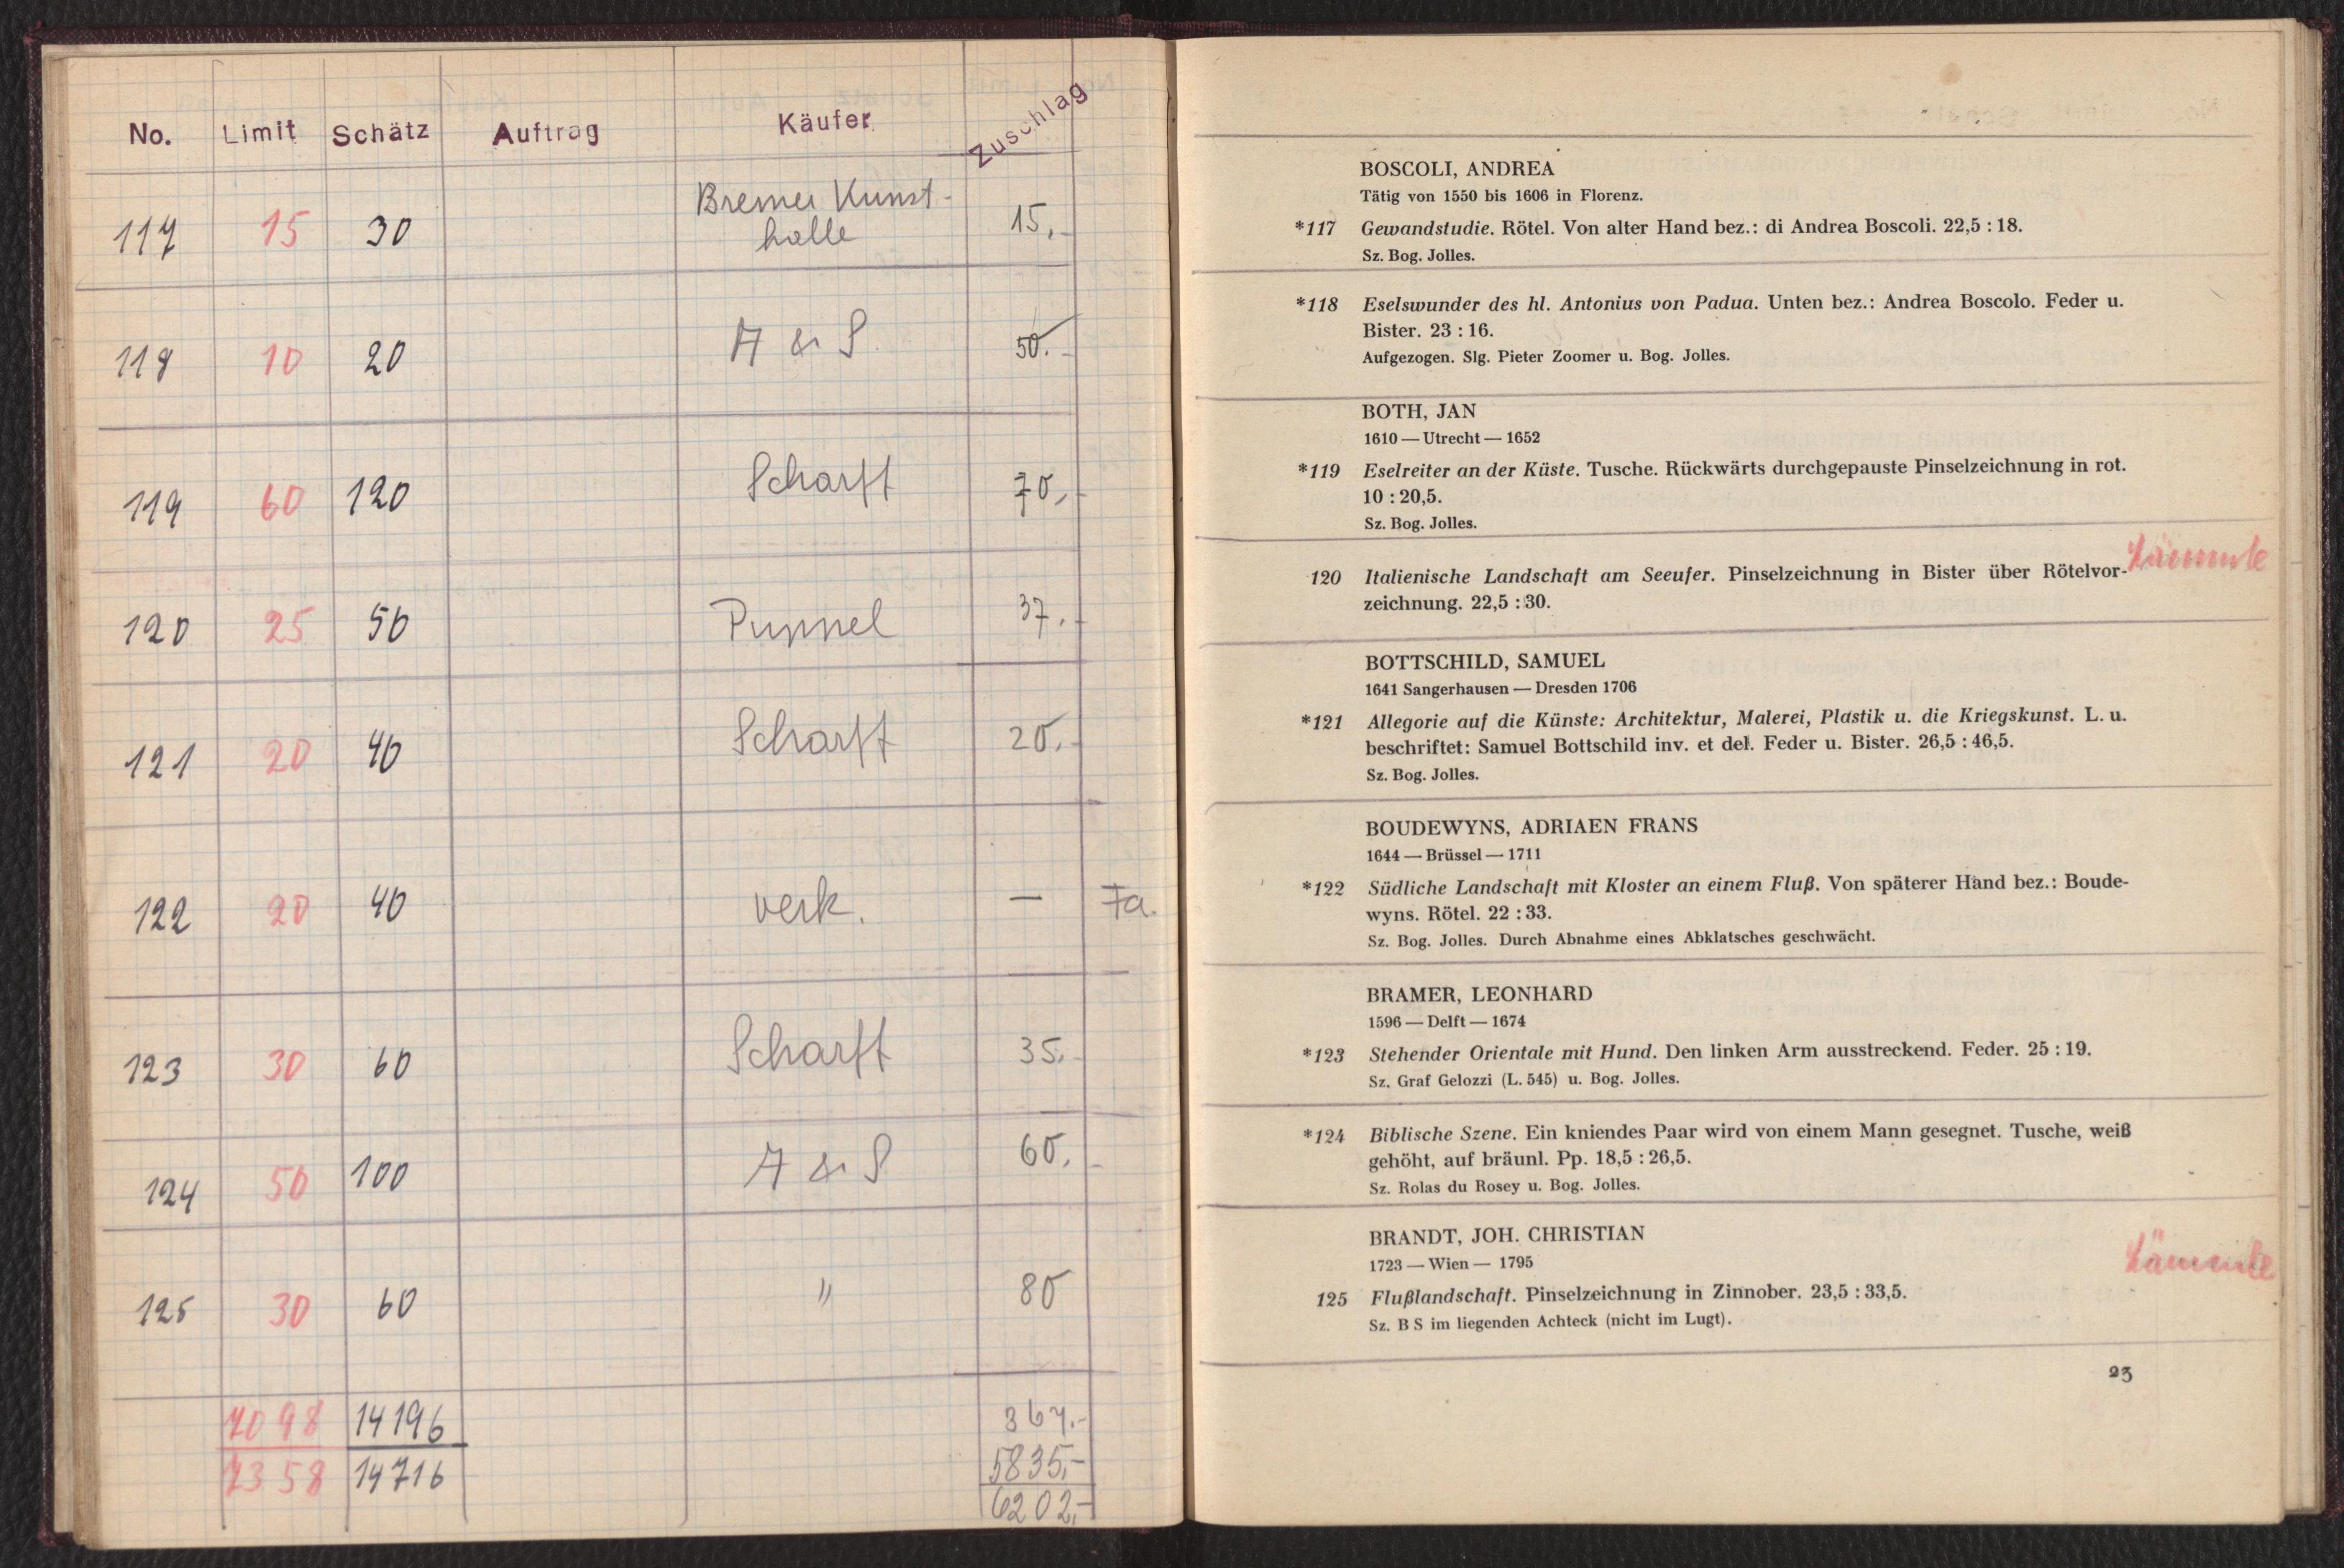 No. Limit Schätz Auftrag Käufer Zuschlag
117 15 30 Bremer Kunst-
halle 15,-
118 10 20 A & S. 50.-
119 60 120 Scharff 70,-
120 25 50 37.-
121 20 40 Scharff 20.-
122 20 40 verk. — Fa.
123 30 60 Scharff 35.-
124 50 100 A & S 60.-
125 30 60 " 80
7098 14196 367.-
7358 14716 5835,-
6202,-
BOSCOLI, ANDREA
Tätig von 1550 bis 1606 in Florenz.
*117 Gewandstudie. Rötel. Von alter Hand bez.: di Andrea Boscoli. 22,5 : 18.
Sz. Bog. Jolles.
*118 Eselswunder des hl. Antonius von Padua. Unten bez.: Andrea Boscolo. Feder u.
Bister. 23 : 16.
Aufgezogen. Slg. Pieter Zoomer u. Bog. Jolles.
BOTH, JAN
1610 — Utrecht — 1652
*119 Eselreiter an der Küste. Tusche. Rückwärts durchgepauste Pinselzeichnung in rot.
10 : 20,5.
Sz. Bog. Jolles.
120 Italienische Landschaft am Seeufer. Pinselzeichnung in Bister über Rötelvor-
zeichnung. 22,5 : 30.
BOTTSCHILD, SAMUEL
1641 Sangerhausen — Dresden 1706
*121 Allegorie auf die Künste: Architektur, Malerei, Plastik u. die Kriegskunst. L. u.
beschriftet: Samuel Bottschild inv. et del. Feder u. Bister. 26,5 : 46,5.
Sz. Bog. Jolles.
BOUDEWYNS, ADRIAEN FRANS
1644 — Brüssel — 1711
*122 Südliche Landschaft mit Kloster an einem Fluß. Von späterer Hand bez.: Boude-
wyns. Rötel. 22 : 33.
Sz. Bog. Jolles. Durch Abnahme eines Abklatsches geschwächt.
BRAMER, LEONHARD
1596 — Delft — 1674
*123 Stehender Orientale mit Hund. Den linken Arm ausstreckend. Feder. 25 : 19.
Sz. Graf Gelozzi (L. 545) u. Bog. Jolles.
*124 Biblische Szene. Ein kniendes Paar wird von einem Mann gesegnet. Tusche, weiß
gehöht, auf bräunl. Pp. 18,5 : 26,5.
Sz. Rolas du Rosey u. Bog. Jolles.
BRANDT, JOH. CHRISTIAN
1723 — Wien — 1795
125 Flußlandschaft. Pinselzeichnung in Zinnober. 23,5 : 33,5.
Sz. B S im liegenden Achteck (nicht im Lugt).
23